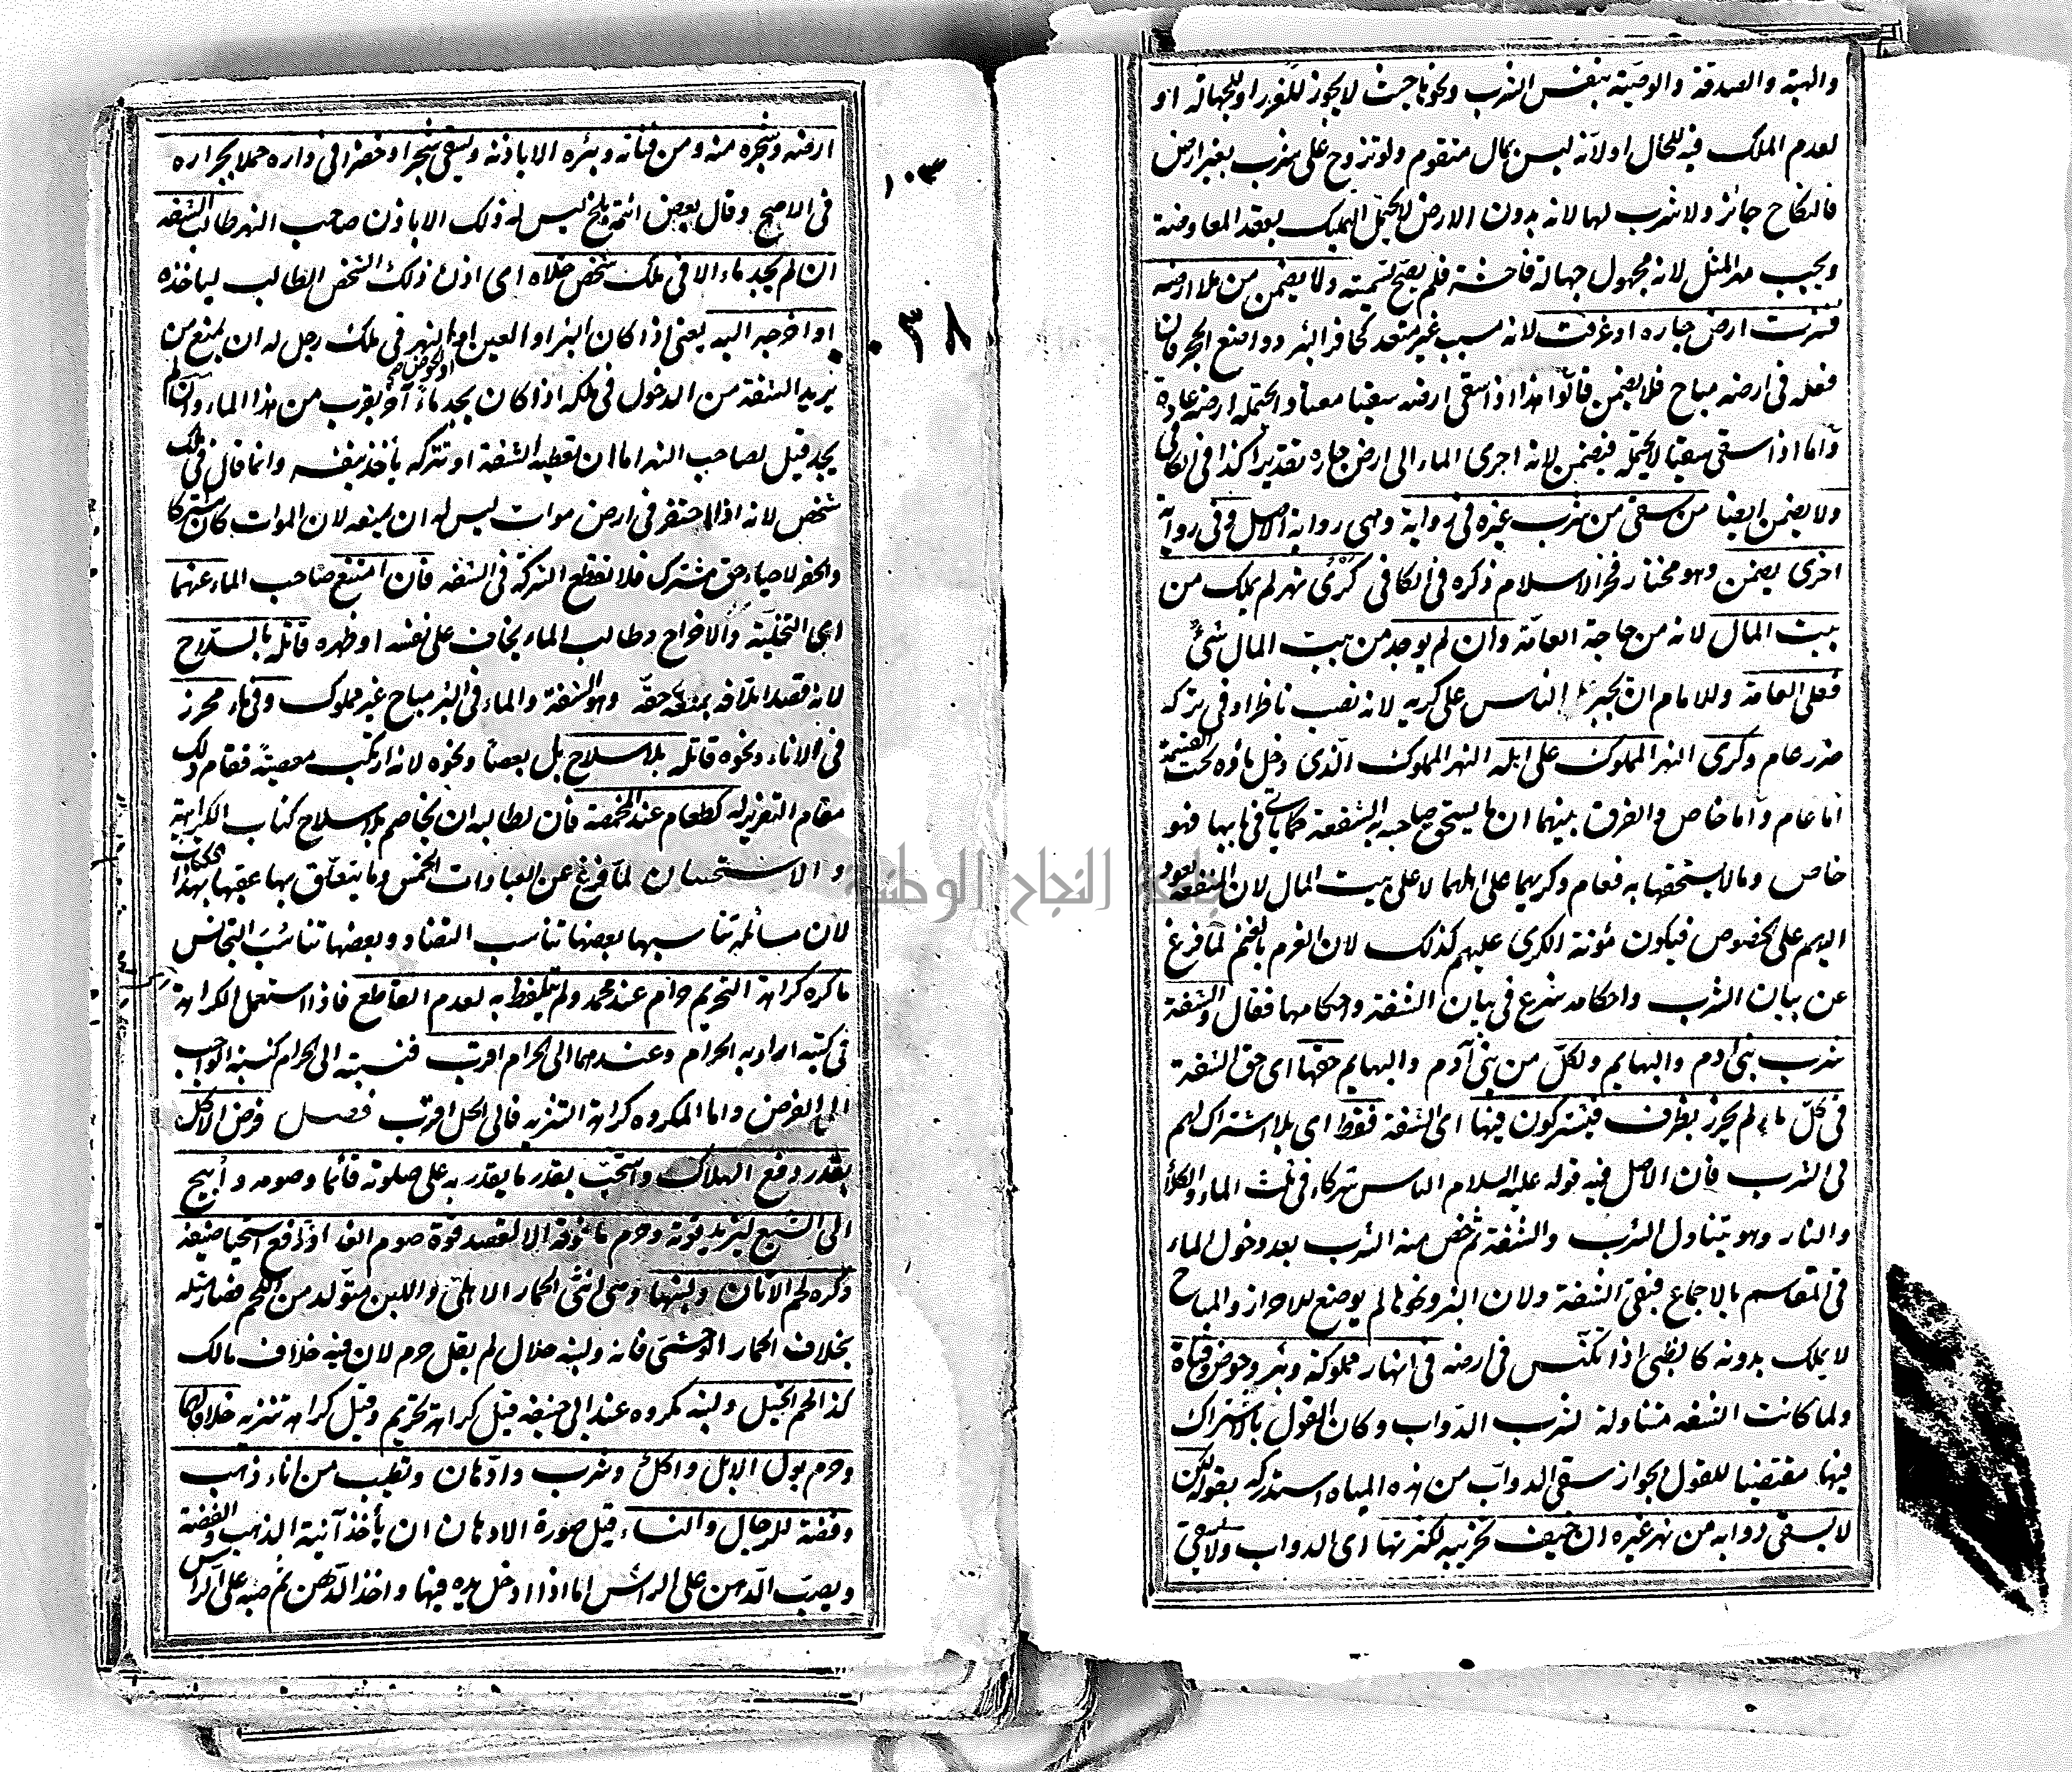 والهبة والصدقة والوصية بنفس الشرب ونحوها حيث لا يجوز للغرر او للجهالة او
لعدم الملك فيه للحال او لانه ليس بمال متقوم ولو تزوج على شرب بغير ارض
فالنكاح جائز ولا شرب لها لانه بدون الارض لا يحتمل التمليك بعقد المعاوضة
ويجب مهر المثل لانه مجهول جهالة فاحشة فلم يصح تسميته ولا يضمن من ملا ارضه
فنزت ارض جاره او غرقت لانه مسبب غير متعد كحافر البئر وواضع الحجر فان
فعله في ارضه مباح فلا يضمن قالوا هذا اذا سقى ارضه سقيا معتادا تحتمله ارضه عادة
واما اذا سقى سقيا لا تحتمله فيضمن لانه اجرى الماء الى ارض جاره تقديرا كذا في الكافي
ولا يضمن ايضا من سقى من شرب غيره في رواية وهي رواية الاصل وفي رواية
اخرى يضمن وهو مختار فخر الاسلام ذكره في الكافي كرى نهر لم يملك من
بيت المال لانه من حاجة العامة وان لم يوجد من بيت المال شئ
فعلى العامة وللامام ان يجبر الناس على كريه لانه نصب ناظرا وفي تركه
ضرر عام وكرى النهر المملوك على اهله النهر المملوك الذي دخل ماؤه تحت القسمة
اما عام واما خاص والفرق بينهما ان ما يستحق صاحبه به الشفعة كما ياتي في بابها فهو
خاص وما لا يستحقها به فعام وكريهما على اهلهما لا على بيت المال لان المنفعة تعود
اليهم على الخصوص فيكون مؤنة الكرى عليهم كذلك لان الغرم بالغنم لما فرغ
عن بيان الشرب واحكامه شرع في بيان الشفة واحكامها فقال والشفة
شرب بني ادم والبهايم ولكل من بني آدم والبهايم حقها اى حق الشفة
في كل ماء لم يحرز بظرف فيشتركون فيها اى الشفة فقط اى بلا اشتراك لهم
في الشرب فان الاصل فيه قوله عليه السلام الناس شركاء في ثلث الماء والكلأ
والنار وهو يتناول الشرب والشفة ثم خص منه الشرب بعد دخول الماء
في المقاسم بالاجماع فبقى الشفة ولان البئر ونحوها لم يوضع للاحراز والمباح
لا يملك بدونه كالظبى اذا تكنس في ارضه في انهار مملوكة وبئر وحوض وقناة
ولما كانت الشفة متناولة لشرب الدواب وكان القول بالاشتراك
فيها مقتضيا للقول بجواز سقى الدواب من هذه المياه استدركه بقوله لكن
لا يسقى دوابه من نهر غيره ان خيف تخريبه لكثرتها اى الدواب ولا يسقى
١٠٣
٣٨
ارضه وشجره منه ومن قناته وبئره الا باذنه ويسقى شجرا او خضرا في داره حملا بجراره
في الاصح وقال بعض ائمة بلخ ليس له ذلك الا باذن صاحب النهر طالب الشفة
ان لم يجد ماء الا في ملك شخص خلاه اى اذن ذلك الشخص الطالب ليأخذه
او اخرجه اليه يعنى اذا كان البئر او العين او النهر في ملك رجل له ان يمنع من
او الحوض صح
يريد الشفة من الدخول في ملكه اذا كان يجد ماء آخر بقرب من هذا الماء وان لم
يجد قيل لصاحب النهر اما ان تعطيه الشفة او تتركه يأخذ بنفسه وانما قال في ملك
شخص لانه اذا احتفر في ارض موات ليس له ان يمنعه لان الموات كان مشتركا
والحفر لاحياء حق مشترك فلا تقطع الشركة في الشفه فان امتنع صاحب الماء عنهما
اى التخلية والاخراج وطالب الماء يخاف على نفسه او ظهره قاتله بالسلاح
لانه قصد اتلافه بمنعه حقه وهو الشفة والماء في البئر مباح غير مملوك وفى ماء محرز
فى الاناء ونحوه قاتله بلا سلاح بل بعصا ونحوه لانه ارتكب معصية فقام ذلك
مقام التعزير له كطعام عند المخمصة فان لطالبه ان يخاصم بلا سلاح كتاب الكراهية
والاستحسان لما فرغ عن العبادات الخمس وما يتعلق بها عقبها بهذا الكتاب
لان مسائله تناسبها بعضها تناسب التضاد وبعضها تناسب التجانس
ما كره كراهة التحريم حرام عند محمد ولم يتلفظ به لعدم القاطع فاذا استعمل الكراهة
في كتبه اراد به الحرام وعندهما الى الحرام اقرب فنسبته الى الحرام كنسبة الواجب
الى الفرض واما المكروه كراهة التنزيه فالى الحل اقرب فصل فرض الاكل
بقدر دفع الهلاك واستحب بقدر ما يقدر به على صلوته قائما وصومه وابيح
الى الشبع ليزيد قوته وحرم ما فوقه الا لقصد قوة صوم الغد او لدفع استحيا ضيفه
وكره لحم الاتان ولبنها وهى انثى الحمار الاهلى واللبن متولد من اللحم فصار مثله
بخلاف الحمار الوحشى فانه ولبنه حلال لم يقل حرم لان فيه خلاف مالك
كذا لحم الخيل ولبنه مكروه عند ابى حنيفة قيل كراهة تحريم وقيل كراهة تنزيه خلافا لهما
وحرم بول الابل واكل وشرب وادهان وتطيب من اناء ذهب
وفضة للرجال والنساء قيل صورة الادهان ان يأخذ آنية الذهب والفضة
ويصب الدهن على الراس اما اذا ادخل يده فيها واخذ الدهن ثم صبه على الراس